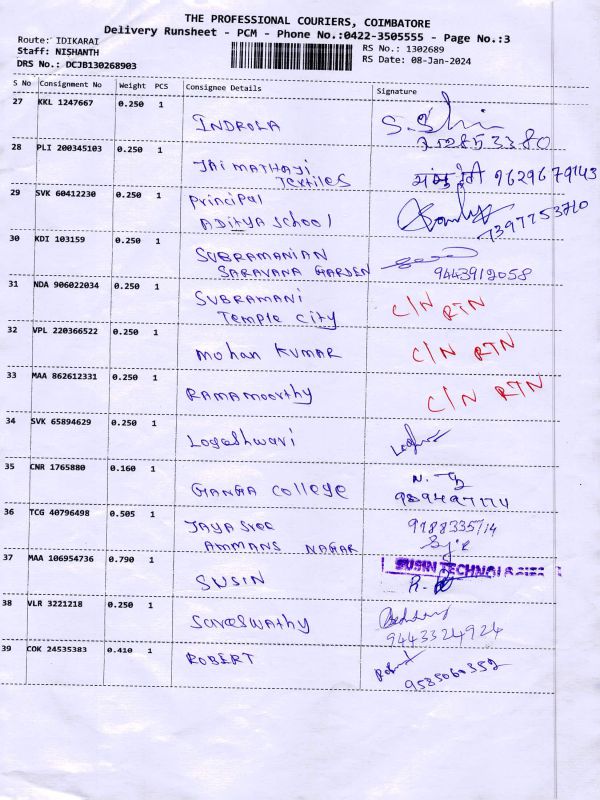 THE PROFESSIONAL COURIERS, COIMBATORE
Delivery Runsheet - PCM - Phone No.:0422-3505555 - Page No.:3
Route: IDIKARAI
RS No.: 1302689
Staff: NISHANTH
RS Date: 08-Jan-2024
DRS No.: DCJB130268903
S No Consignment No Weight PCS Consignee Details Signature
27 KKL 1247667 0.250 1 INDROLA
28 PLI 200345103 0.250 1 JAI MATHAJI
Textiles 9629679143
29 SVK 60412230 0.250 1 Principal
ADITYA School 7397753710
30 KDI 103159 0.250 1 SUBRAMANIAN
SARAVANA GARDEN 9443912058
31 NDA 906022034 0.250 1 SUBRAMANI C/N RTN
Temple city
32 VPL 220366522 0.250 1 Mohan KUMAR C/N RTN
33 MAA 862612331 0.250 1 RAMAMOORTHY C/N RTN
34 SVK 65894629 0.250 1 Logeshwari
35 CNR 1765880 0.160 1 GANGA College
36 TCG 40796498 0.505 1 JAYA SREE
AMMANS NAGAR
37 MAA 106954736 0.790 1 SUSIN SUSIN
38 VLR 3221218 0.250 1 Sareswathy
9443324924
39 COK 24535383 0.410 1 ROBERT
9585060352